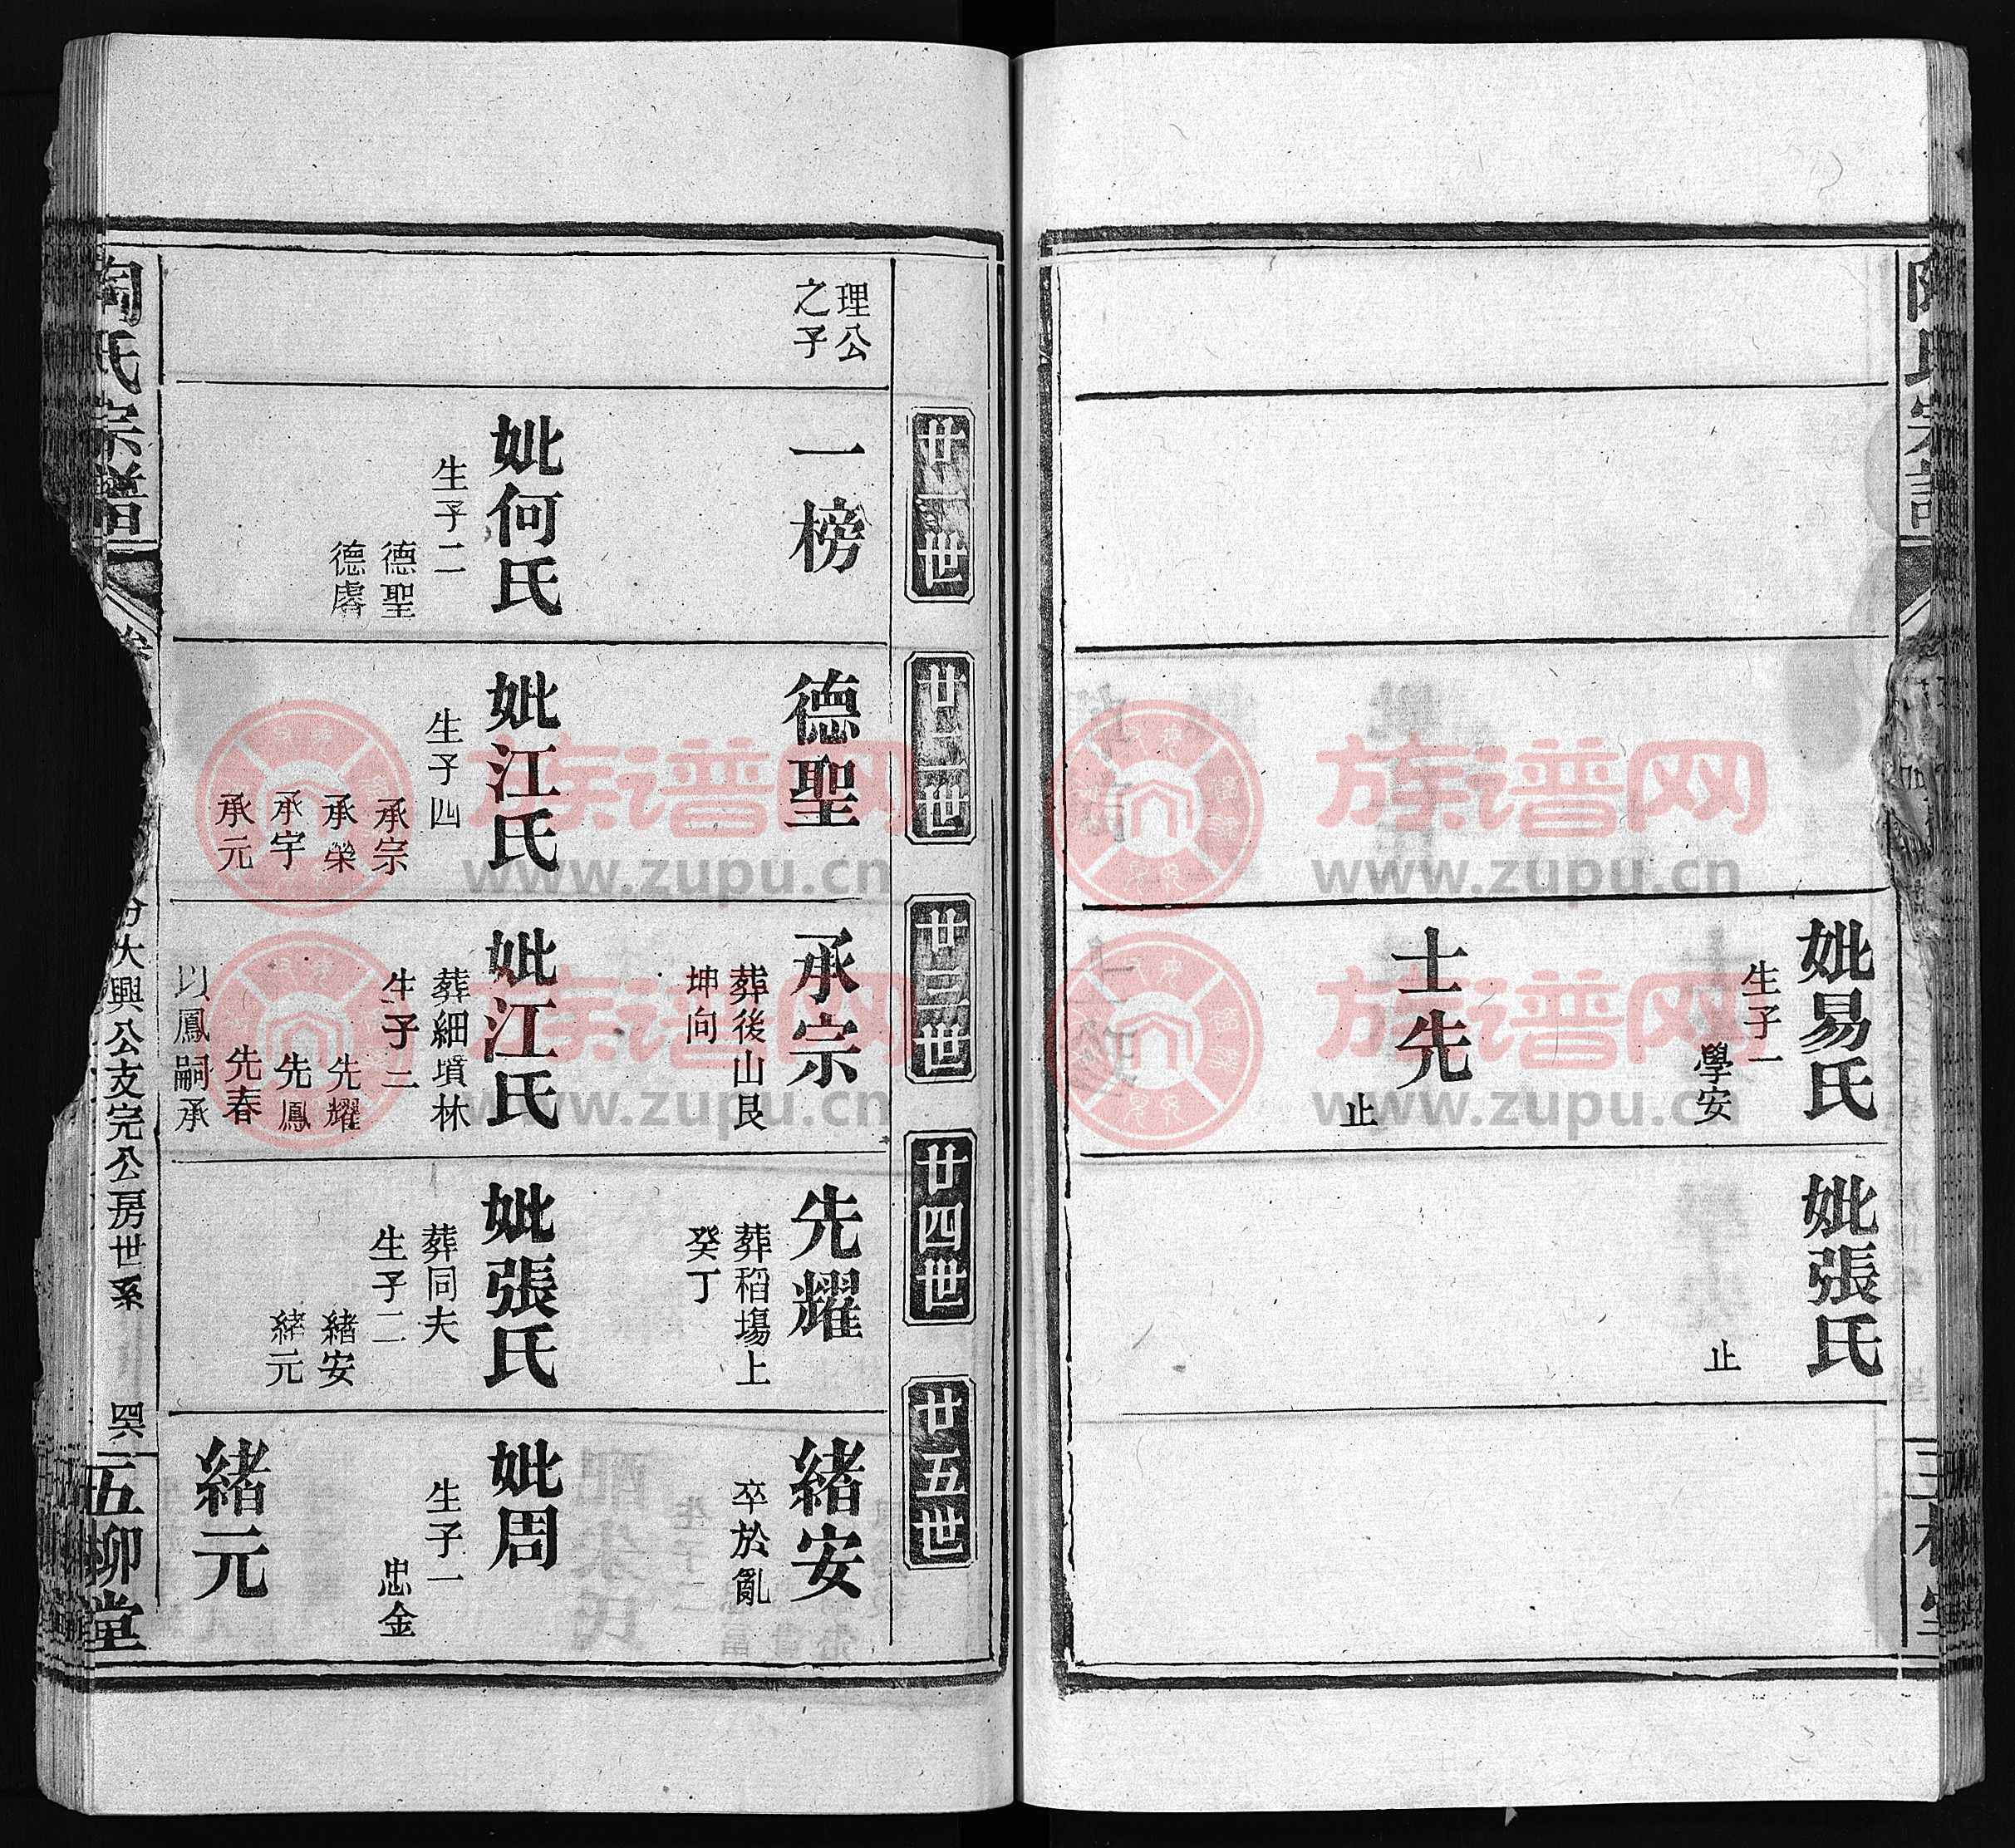 妣易氏
生子一
學安
士先
止
妣張氏
止
廿一世
廿二世
廿三世
廿四世
廿五世
理公
之子
一榜
妣何氏
生子二
德聖
德睿
德聖
妣江氏
生子四
承宗
承榮
承宇
承元
承宗
葬後山艮
坤向
妣江氏
葬細墳林
生子三
先耀
先鳳
先春
以鳳嗣承
先耀
葬稻場上
癸丁
妣張氏
葬同夫
生子二
緒安
緒元
緒安
卒於亂
妣周
生子一
忠金
緒元
陶氏宗譜
卷
分大興公支完公房世系
五柳堂
族谱网
www.zupu.cn
族谱网
www.zupu.cn
族谱网
www.zupu.cn
族谱网
www.zupu.cn